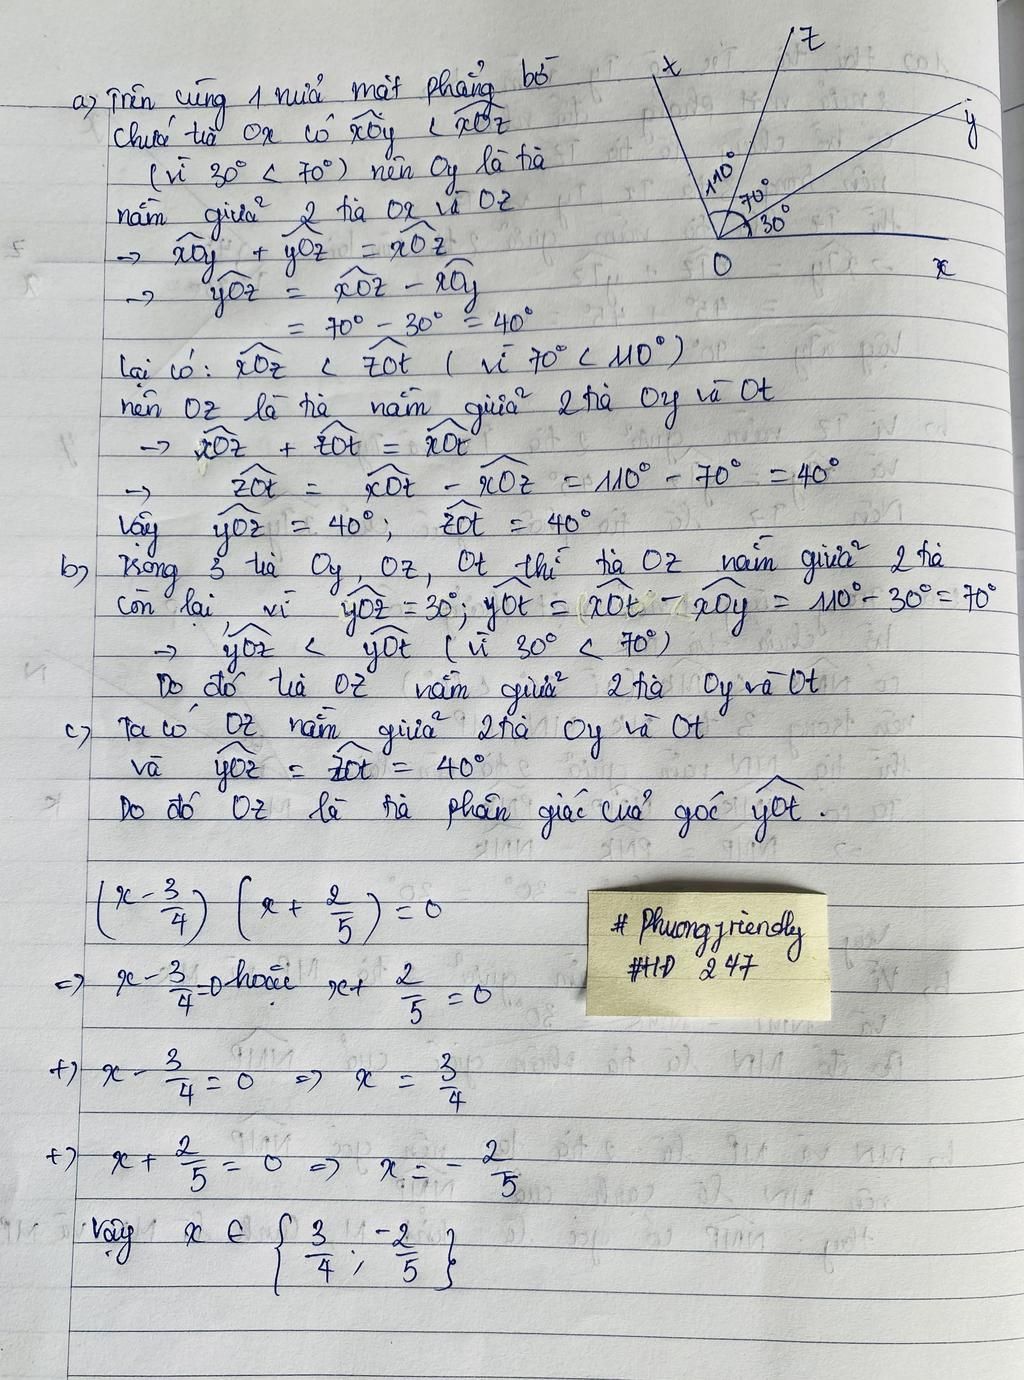 a) Trên cùng 1 nửa mặt phẳng bờ
chứa tia Ox có xÔy < xÔz
(vì 30° < 70°) nên Oy là tia
nằm giữa 2 tia Ox và Oz
→ xÔy + yÔz = xÔz
→ yÔz = xÔz - xÔy
= 70° - 30° = 40°
Lại có: xÔz < zÔt (vì 70° < 110°)
nên Oz là tia nằm giữa 2 tia Oy và Ot
→ xÔz + zÔt = xÔt
→ zÔt = xÔt - xÔz = 110° - 70° = 40°
Vậy yÔz = 40°; zÔt = 40°
b) Trong 3 tia Oy, Oz, Ot thì tia Oz nằm giữa 2 tia
còn lại, vì yÔz = 30°; yÔt = xÔt - xÔy = 110° - 30° = 70°
→ yÔz < yÔt (vì 30° < 70°)
Do đó tia Oz nằm giữa 2 tia Oy và Ot
c) Ta có Oz nằm giữa 2 tia Oy và Ot
và yÔz = zÔt = 40°
Do đó Oz là tia phân giác của góc yÔt.
t
z
y
110°
70°
30°
O
x
(x - 3/4) (x + 2/5) = 0
=> x - 3/4 = 0 hoặc x + 2/5 = 0
+) x - 3/4 = 0 => x = 3/4
+) x + 2/5 = 0 => x = - 2/5
Vậy x ∈ { 3/4 ; -2/5 }
# Phuongfriendly
#HD 247